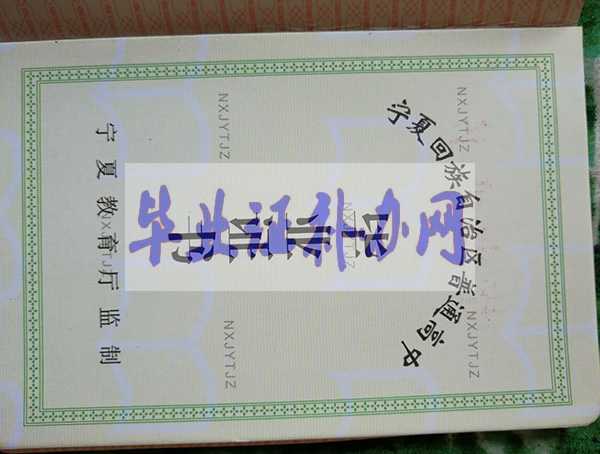 宁夏回族自治区普通高中
NXJYTJZ
NXJYTJZ
NXJYTJZ
毕业证书
毕业证补办网
NXJYTJZ
NXJYTJZ
NXJYTJZ
宁夏教育厅监制